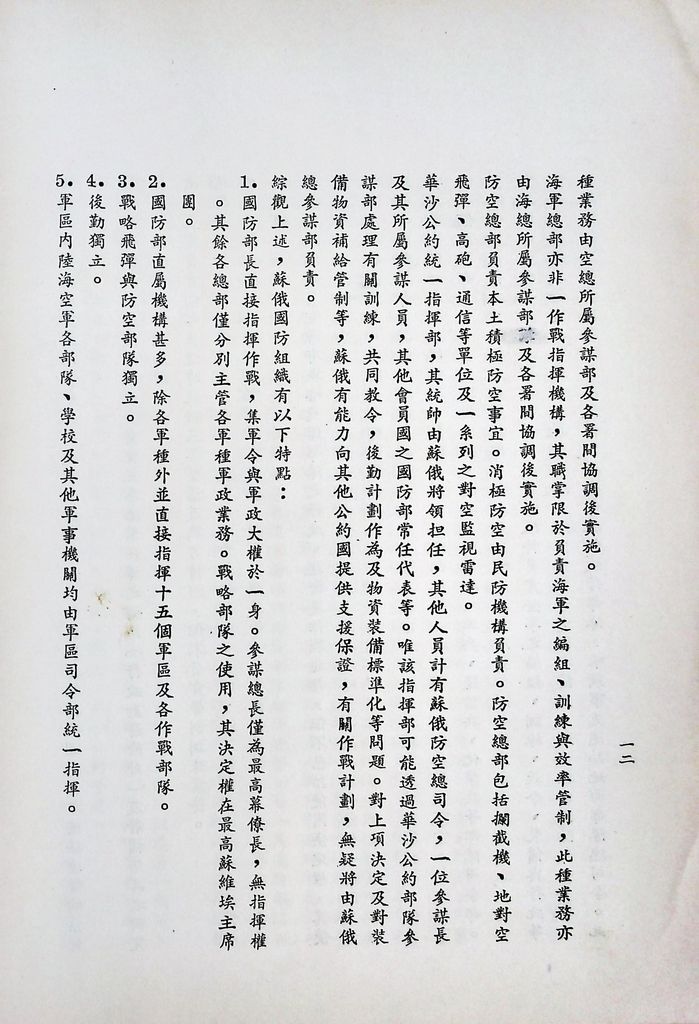 種業務由空總所屬參謀部及各署間協調後實施。
海軍總部亦非一作戰指揮機構，其職掌限於負責海軍之編組、訓練與效率管制，此種業務亦
由海總所屬參謀部及各署間協調後實施。
防空總部負責本土積極防空事宜。消極防空由民防機構負責。防空總部包括攔截機、地對空
飛彈、高砲、通信等單位及一系列之對空監視雷達。
華沙公約統一指揮部，其統帥由蘇俄將領担任，其他人員計有蘇俄防空總司令，一位參謀長
及其所屬參謀人員，其他會員國之國防部常任代表等。唯該指揮部可能透過華沙公約部隊參
謀部處理有關訓練，共同教令，後勤計劃作為及物資裝備標準化等問題。對上項決定及對裝
備物資補給管制等，蘇俄有能力向其他公約國提供支援保證，有關作戰計劃，無疑將由蘇俄
總參謀部負責。
綜觀上述，蘇俄國防組織有以下特點：
1.國防部長直接指揮作戰，集軍令與軍政大權於一身。參謀總長僅為最高幕僚長，無指揮權
。其餘各總部僅分別主管各軍種軍政業務。戰略部隊之使用，其決定權在最高蘇維埃主席
團。
2.國防部直屬機構甚多，除各軍種外並直接指揮十五個軍區及各作戰部隊。
3.戰略飛彈與防空部隊獨立。
4.後勤獨立。
5.軍區內陸海空軍各部隊、學校及其他軍事機關均由軍區司令部統一指揮。
一二